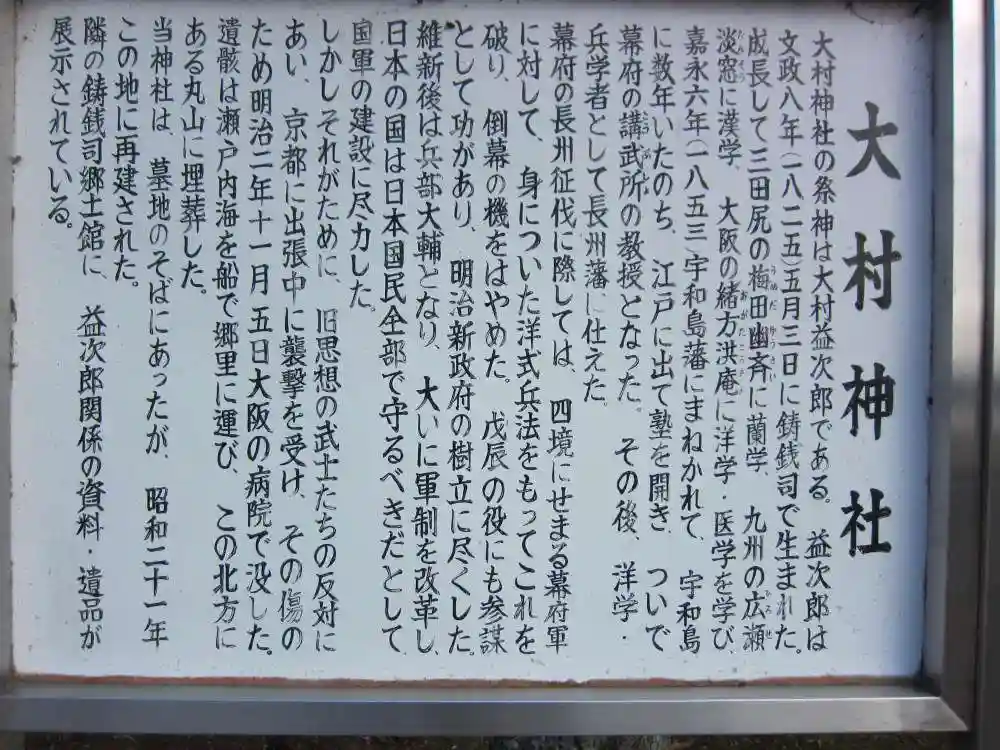 大村神社
大村神社の祭神は大村益次郎である。益次郎は
文政八年(一八二五)五月三日に鋳銭司で生まれた。
成長して三田尻の梅田幽斉に蘭学、九州の広瀬
淡窓に漢学、大阪の緒方洪庵に洋学・医学を学び、
嘉永六年(一八五三)宇和島藩にまねかれて、宇和島
に数年いたのち、江戸に出て塾を開き、ついで
幕府の講武所の教授となった。その後、洋学・
兵学者として長州藩に仕えた。
幕府の長州征伐に際しては、四境にせまる幕府軍
に対して、身についた洋式兵法をもってこれを
破り、倒幕の機をはやめた。戊辰の役にも参謀
として功があり、明治新政府の樹立に尽くした。
維新後は兵部大輔となり、大いに軍制を改革し、
日本の国は日本国民全部で守るべきだとして
国軍の建設に尽力した。
しかしそれがために、旧思想の武士たちの反対に
あい、京都に出張中に襲撃を受け、その傷の
ため明治二年十一月五日大阪の病院で没した。
遺骸は瀬戸内海を船で郷里に運び、この北方に
ある丸山に埋葬した。
当神社は、墓地のそばにあったが、昭和二十一年
この地に再建された。
隣の鋳銭司郷土館に、益次郎関係の資料・遺品が
展示されている。